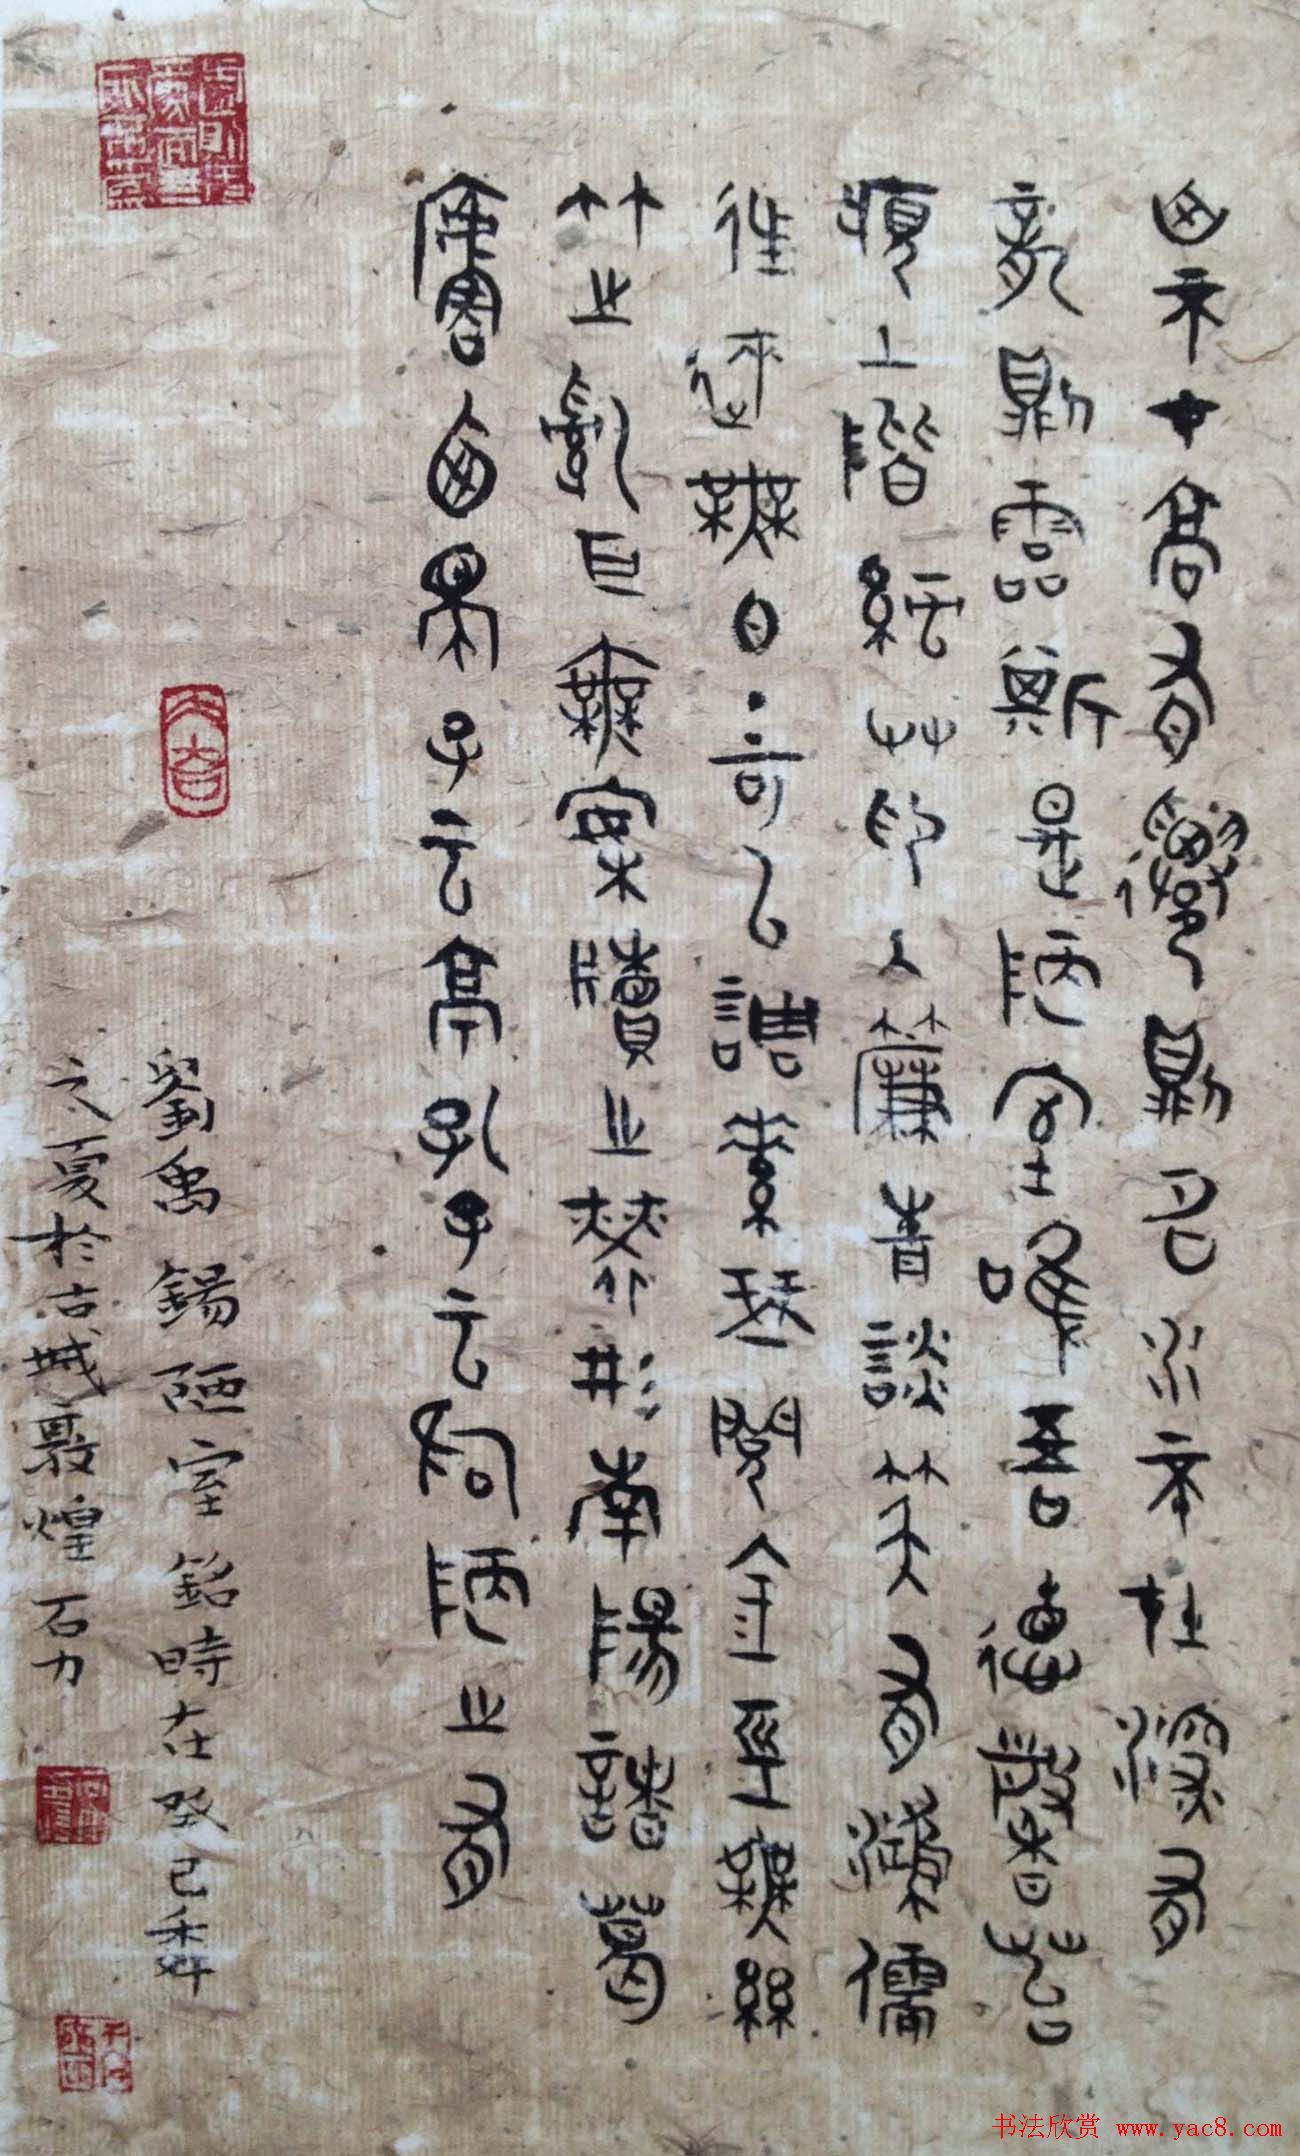 山不才高有僊則名水不在深有
龍則靈斯是陋室唯吾德馨苔
痕上階綠艸色入簾青談笑有鴻儒
往來無白丁可以調素琴閱金巠無絲
竹之亂耳無案牘之勞形南陽諸葛
廬西蜀子云亭孔子云何陋之有
劉禹錫陋室銘時在癸巳秊
之夏於古城敦煌石力
书法欣赏 www.yac8.com